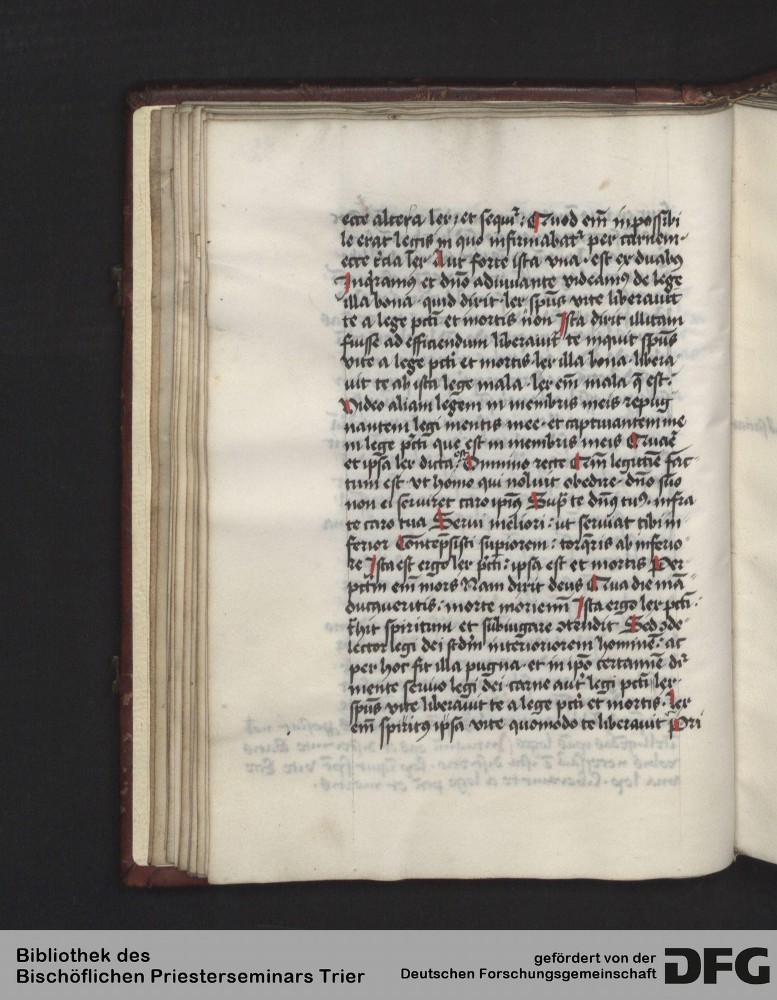 ecce altera lex: et sequit᷑: Quod em̄ inpossibi
le erat legis in quo infirmabat᷑ per carnem·
ecce t̄cia lex Aut forte ista vna · est ex duabꝰ
Inqͥramꝰ et dn̄o adiuuante videamꝰ de lege
illa bona · quid dixit · lex sp̄us vite liberauit
te a lege pct̄i et mortis non Ista dixit illitam
fuisse ad efficiendum liberauit te inquit sp̄us
vite a lege pct̄i et mortis · lex illa bona · libera
uit te ab ista lege mala · lex em̄ mala q̄ est:
Video aliam legem in membris meis repug
nantem legi mentis mee · et captiuantem me
in lege pct̄i que est in membris meis
et ip̄a lex dicta Omnino recte Em̄ legittīe fac̄
tum est vt homo qui noluit obedire · dn̄o suo
non ei seruiret caro ipiꝰ Sup͛ te dn̄s tuꝰ · infra
te caro tua Serui meliori: ut seruiat tibi in
ferior Contēpsisti supiorem: torq̄ris ab inferio
re Ista est ergo lex pct̄i: ipsa est et mortis Per
pctm̄ em̄ mors Nam dixit deus Qua die mā
ducaueritis · morte moriemī Ista ergo lex pct̄i ·
t̄hit spiritum et subiugare ꝯtendit Sed ꝯde
lector legi dei scd̄m interioriorem hominē: ac
per hoc fit illa pugna · et in ip̄o certamīe dr̄
mente seruio legi dei · carne aut̄ legi pct̄i lex
sp̄us vite liberauit te a lege pct̄i et mortis · lex
em̄ spiritꝰ ipsa vite quomodo te liberauit Pri
Bibliothek des
Bischöflichen Priesterseminars Trier
gefördert von der
Deutschen Forschungsgemeinschaft
DFG